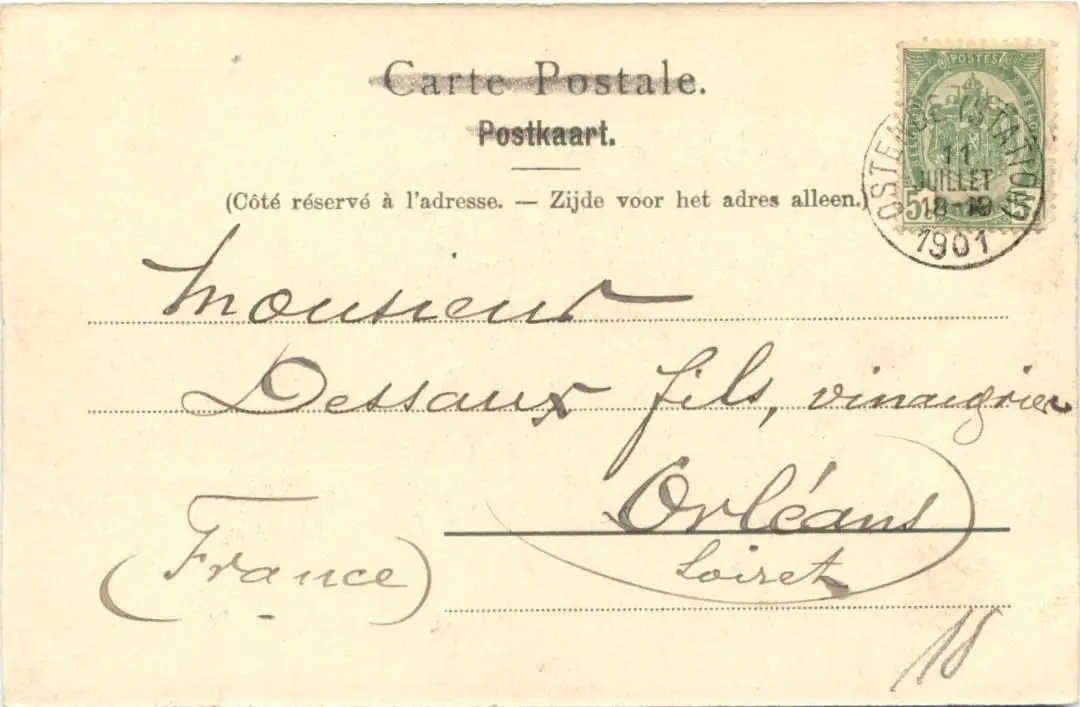 Carte Postale.
Postkaart.
(Côté réservé à l'adresse. — Zijde voor het adres alleen.)
POSTES
5 5
OSTENDE (STATION)
11
JUILLET
18-19
1901
Monsieur
Dessaux fils, vinaigrier
Orléans
Loiret
(France)